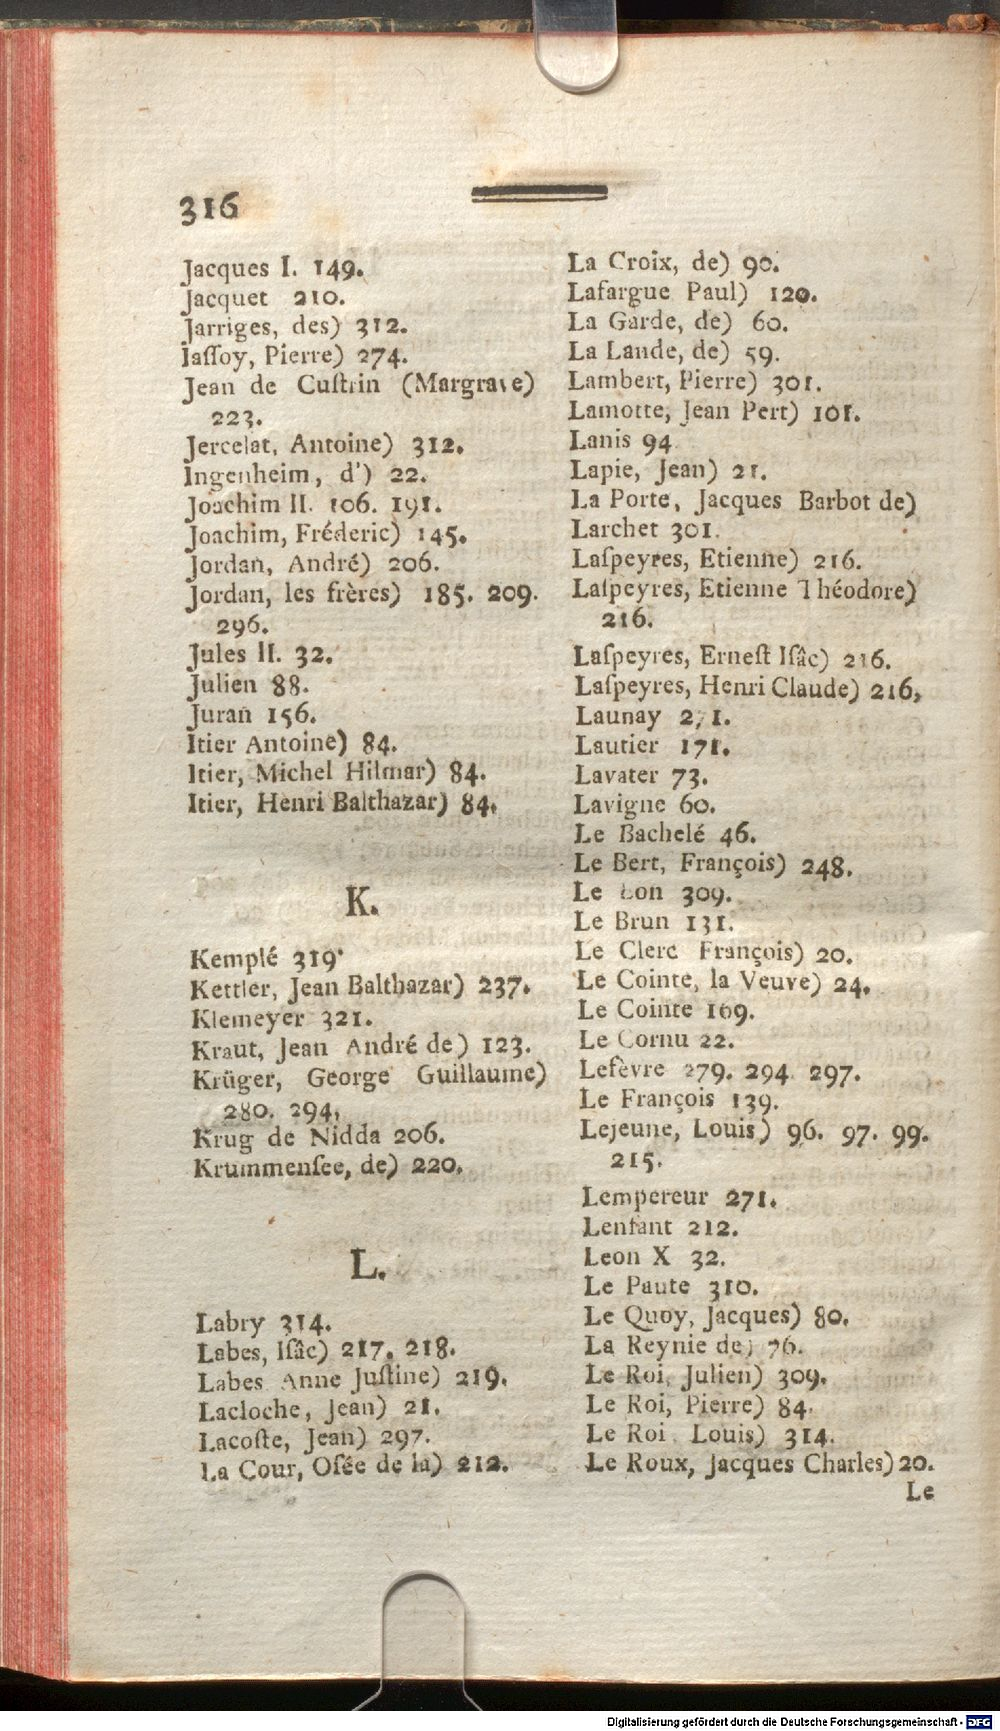 316
Jacques I. 149.
Jacquet 210.
Jarriges, des) 312.
Jaſſoy, Pierre) 274.
Jean de Cuſtrin (Margrave)
223.
Jercelat, Antoine) 312.
Ingenheim, d') 22.
Joachim II. 106. 191.
Joachim, Fréderic) 145.
Jordan, André) 206.
Jordan, les frères) 185. 209.
296.
Jules II. 32.
Julien 88.
Juran 156.
Itier Antoine) 84.
Itier, Michel Hilmar) 84.
Itier, Henri Balthazar) 84.
K.
Kemplé 319.
Kettler, Jean Balthazar) 237.
Klemeyer 321.
Kraut, Jean André de) 123.
Krüger, George Guillaume)
280. 294.
Krug de Nidda 206.
Krummenſee, de) 220.
L.
Labry 314.
Labes, Iſâc) 217. 218.
Labes Anne Juſtine) 219.
Lacloche, Jean) 21.
Lacoſte, Jean) 297.
La Cour, Oſée de la) 212.
La Croix, de) 90.
Lafargue Paul) 120.
La Garde, de) 60.
La Lande, de) 59.
Lambert, Pierre) 301.
Lamotte, Jean Pert) 101.
Lanis 94
Lapie, Jean) 21.
La Porte, Jacques Barbot de)
Larchet 301.
Laſpeyres, Etienne) 216.
Laſpeyres, Etienne Théodore)
216.
Laſpeyres, Erneſt Iſâc) 216.
Laſpeyres, Henri Claude) 216,
Launay 271.
Lautier 171.
Lavater 73.
Lavigne 60.
Le Bachelé 46.
Le Bert, François) 248.
Le Bon 309.
Le Brun 131.
Le Clerc François) 20.
Le Cointe, la Veuve) 24.
Le Cointe 169.
Le Cornu 22.
Lefèvre 279. 294. 297.
Le François 139.
Lejeune, Louis) 96. 97. 99.
215.
Lempereur 271.
Lenfant 212.
Leon X 32.
Le Paute 310.
Le Quoy, Jacques) 80.
La Reynie de) 76.
Le Roi, Julien) 309.
Le Roi, Pierre) 84.
Le Roi Louis) 314.
Le Roux, Jacques Charles) 20.
Le
Digitalisierung gefördert durch die Deutsche Forschungsgemeinschaft - DFG